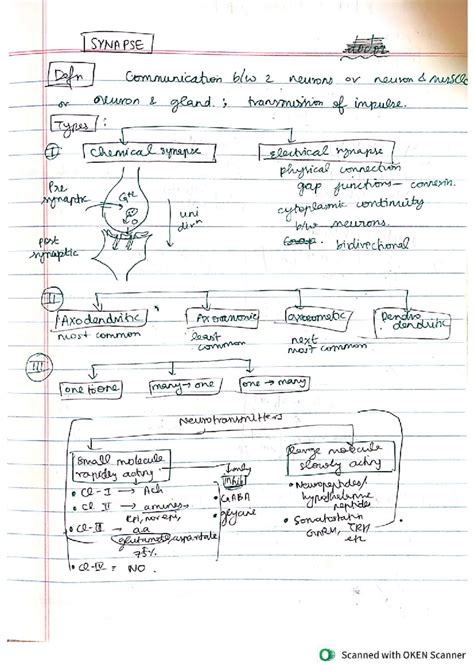 SYNAPSE
Defn Communication b/w 2 neurons or neuron & muscle
or neuron & gland. ; transmission of impulse.
Types :
I Chemical synapse Electrical synapse
physical connection
Pre synaptic
gap junctions - connexin.
cytoplasmic continuity
b/w neurons.
uni dirn
bidirectional
post synaptic
II Axodendritic Axoaxonic axosomatic Dendro dendritic
most common least common next most common
III one to one many → one one → many
Neurotransmitters
Small molecule rapidly acting
Large molecule slowly acting
only inhib
• Cl - I → Ach
• GABA
• Neuropeptides/ hypothalamic peptides
• Cl II → amines
• glycine
• Somatostatin
• Cl - III → a.a
GnRH, TRH
glutamate, aspartate
75%
• Cl - IV = NO.
Scanned with OKEN Scanner